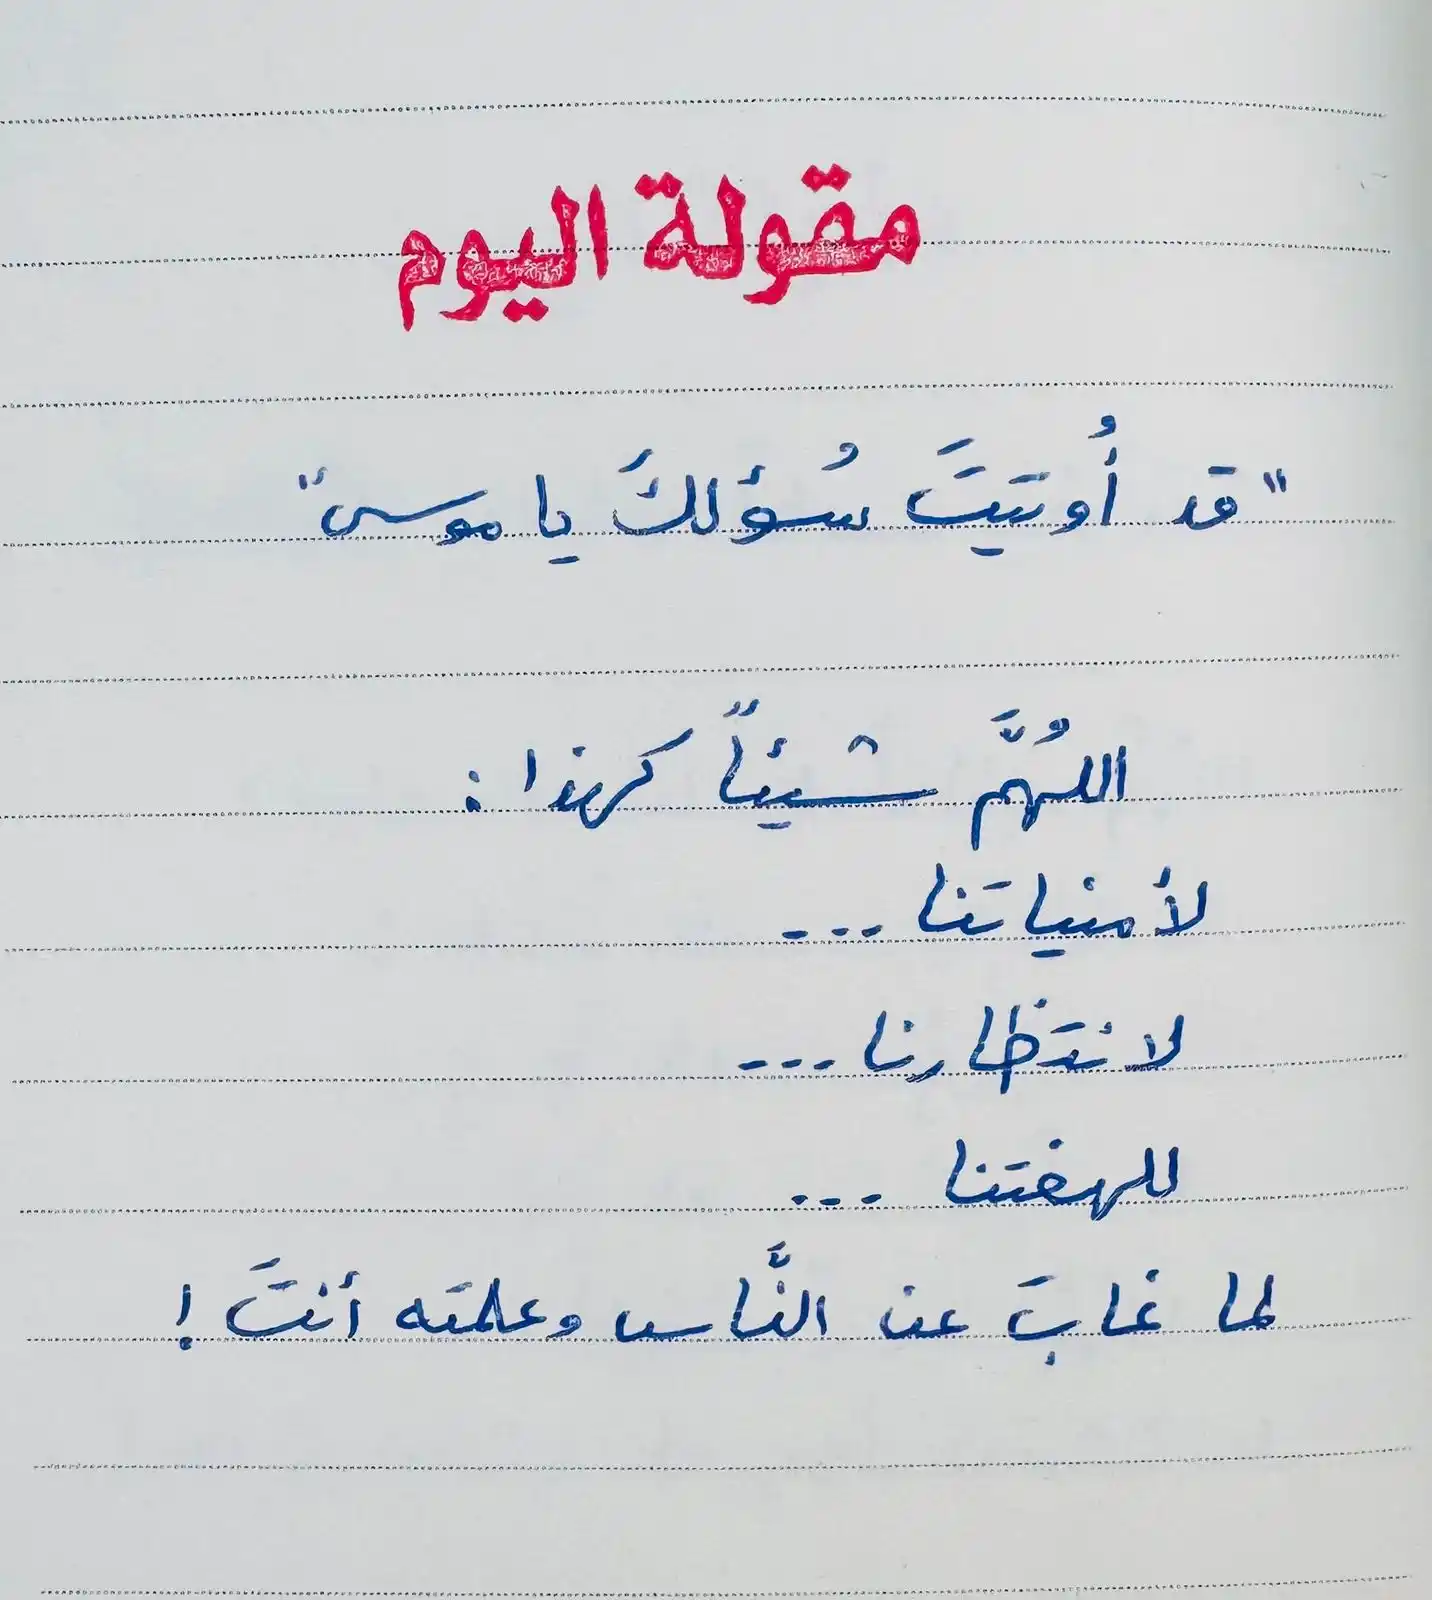 مقولة اليوم
"قد أُوتيتَ سُؤلكَ يا موسى"
اللهُمَّ شيئاً كهذا :
لأمنياتنا ...
لانتظارنا ...
للهفتنا ...
لما غابَ عن النَّاس وعلمته أنتَ !